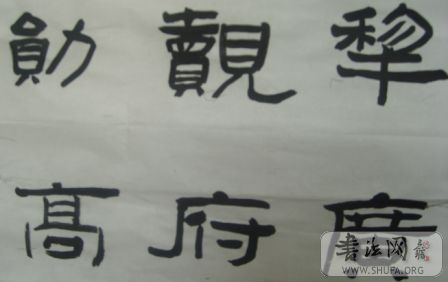 犂廣
覿府
勛高
書法网
WWW.SHUFA.ORG